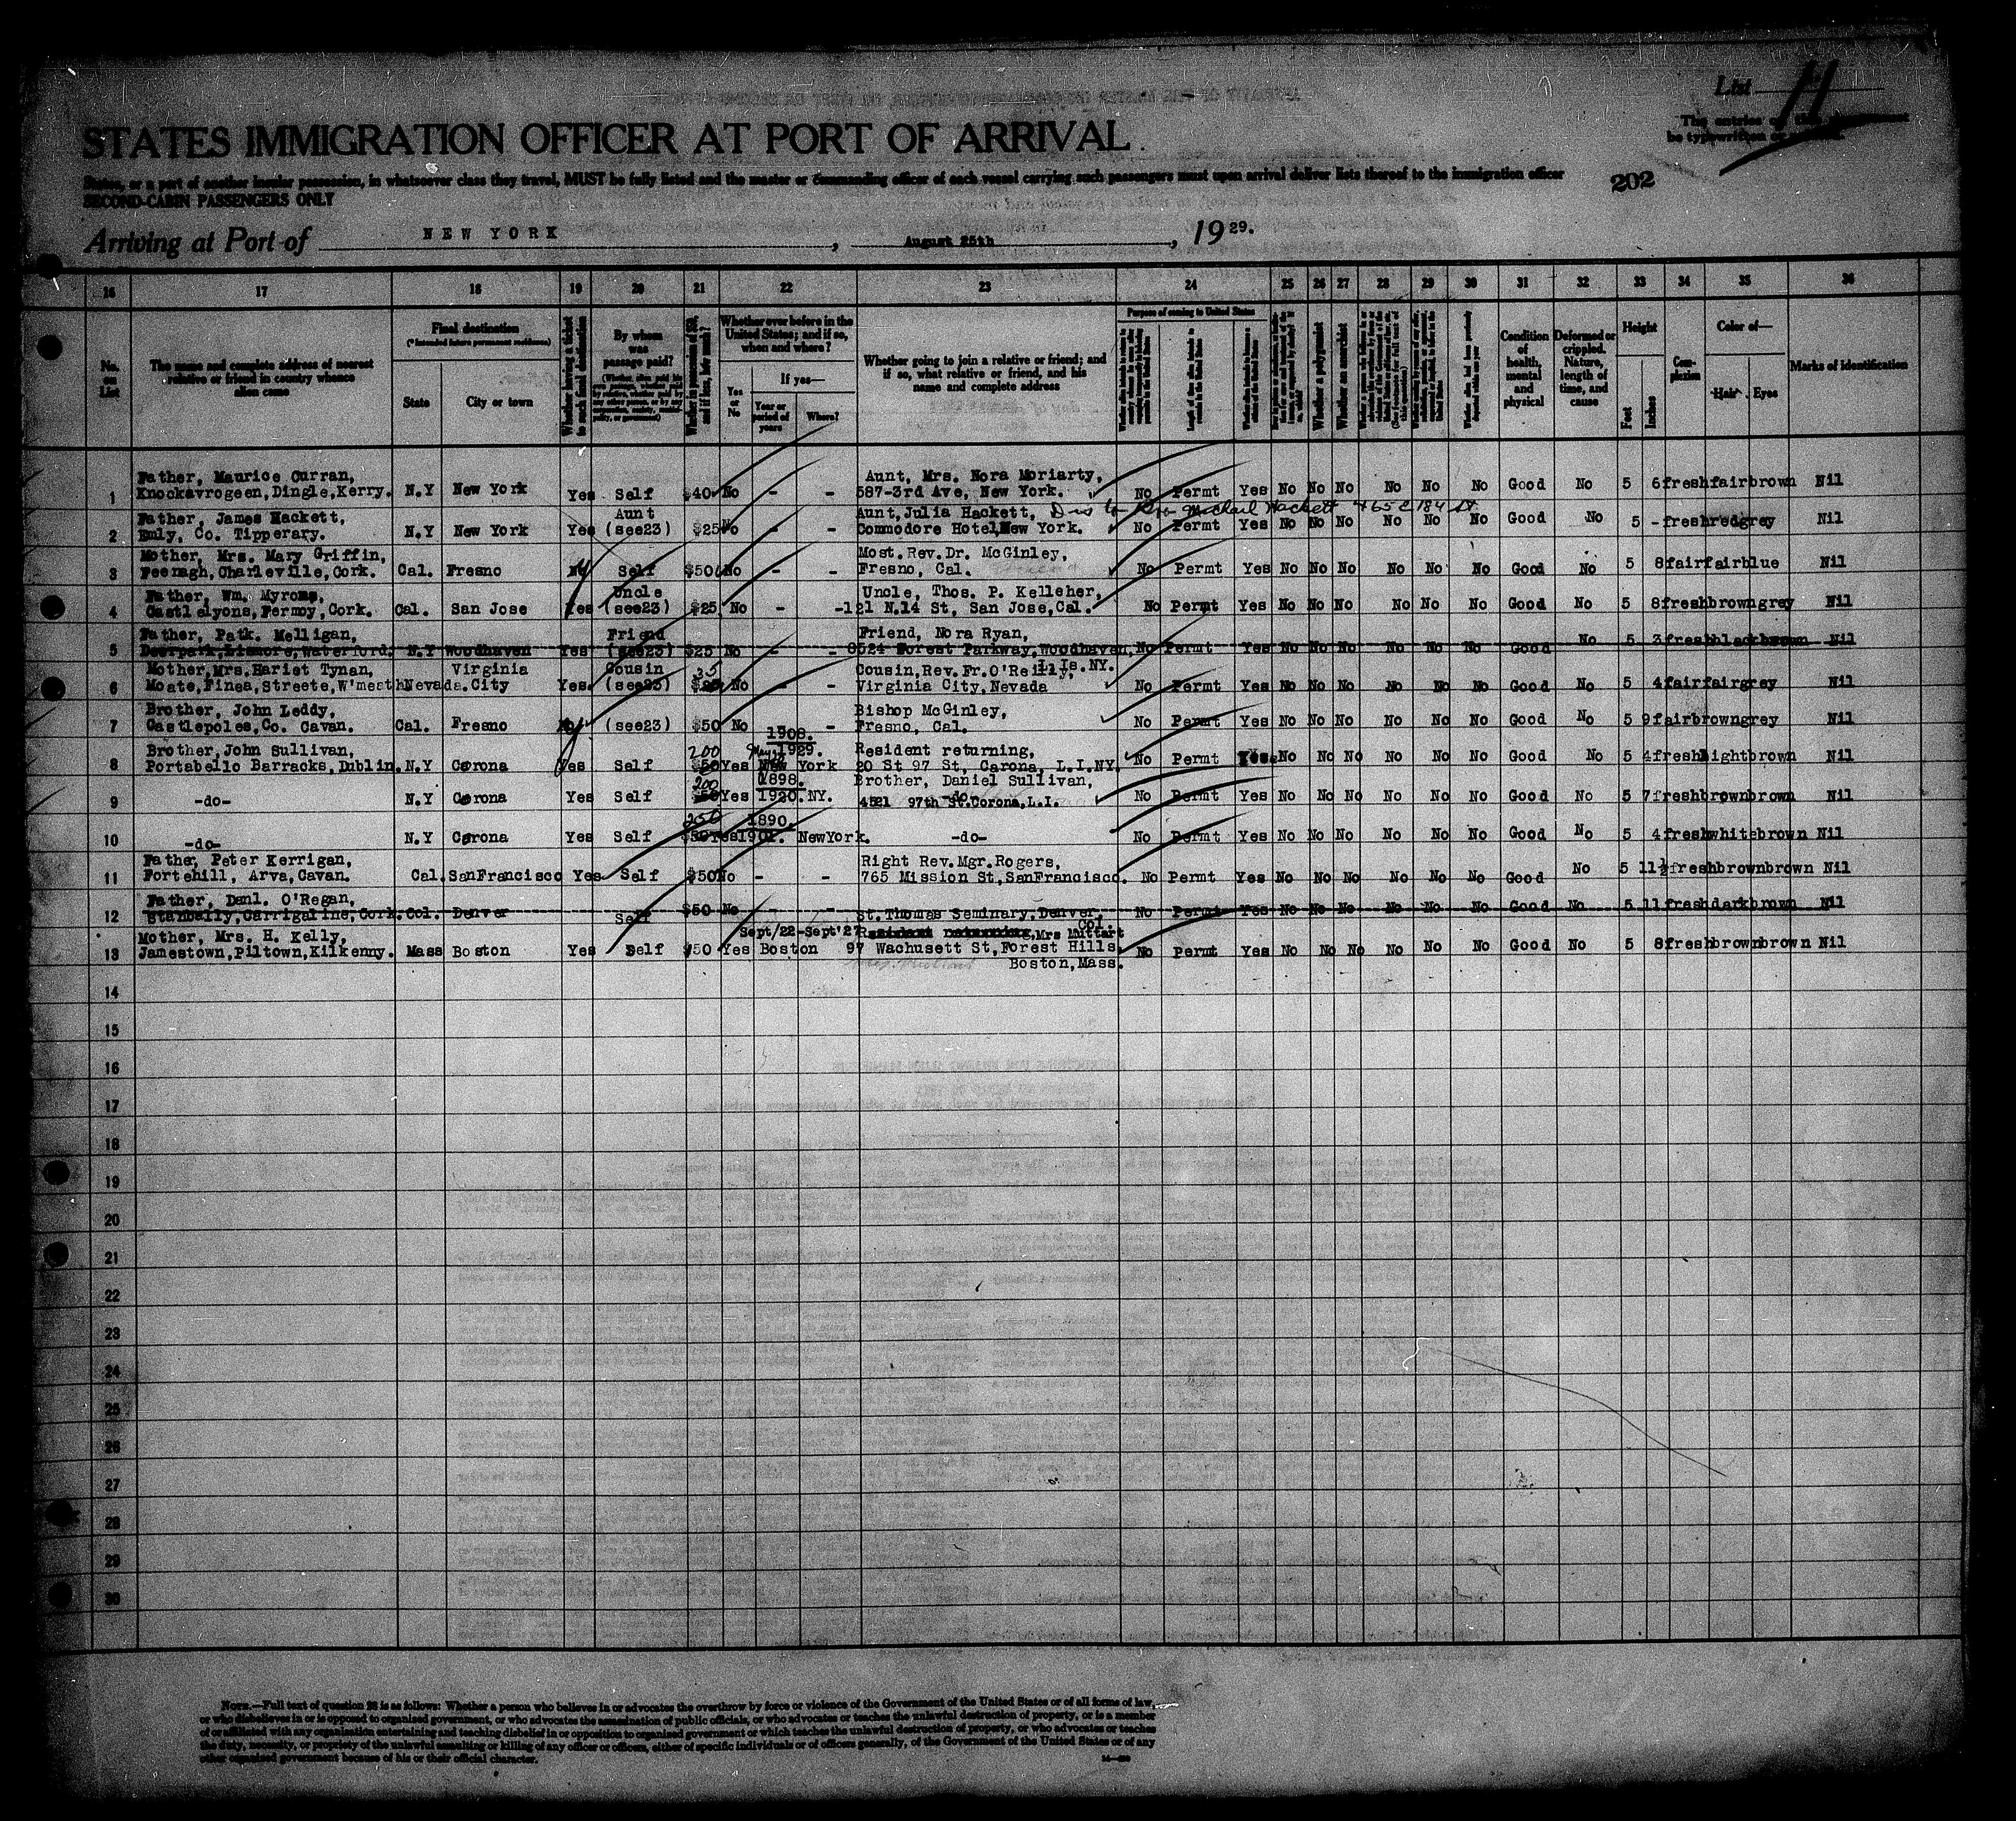 List 11
The entries on this
be typewritten or
STATES IMMIGRATION OFFICER AT PORT OF ARRIVAL
States, or a part of another insular possession, in whatsoever class they travel, MUST be fully listed and the master or commanding officer of each vessel carrying such passengers must upon arrival deliver lists thereof to the immigration officer
202
SECOND-CABIN PASSENGERS ONLY
Arriving at Port of NEW YORK, August 25th, 1929.
16 17 18 19 20 21 22 23 24 25 26 27 28 29 30 31 32 33 34 35 36
No. on List
The name and complete address of nearest relative or friend in country whence alien came
Final destination
(*Intended future permanent residence)
State City or town
Whether having a ticket to such final destination
By whom was passage paid?
Whether ever before in the United States; and if so, when and where?
Yes or No
If yes—
Year or period of years
Where?
Whether going to join a relative or friend; and if so, what relative or friend, and his name and complete address
Purpose of coming to United States
Whether a polygamist
Whether an anarchist
Condition of health, mental and physical
Deformed or crippled. Nature, length of time, and cause
Height
Feet Inches
Complexion
Color of—
Hair Eyes
Marks of identification
Father, Maurice Curran, Aunt, Mrs. Nora Moriarty,
1 Knockavrogeen, Dingle, Kerry. N.Y New York Yes Self $40 No - - 587-3rd Ave, New York. No Permt Yes No No No No No No Good No 5 6 fresh fair brown Nil
Father, James Hackett, Aunt Aunt, Julia Hackett, Michael Hackett 465 E 184 St
2 Emly, Co. Tipperary. N.Y New York Yes (see23) $25 No - - Commodore Hotel, New York. No Permt Yes No No No No No No Good No 5 - fresh red grey Nil
Mother, Mrs. Mary Griffin, Most. Rev. Dr. McGinley,
3 Feenagh, Charleville, Cork. Cal. Fresno Self $50 No - - Fresno, Cal. No Permt Yes No No No No No No Good No 5 8 fair fair blue Nil
Father, Wm. Myroms, Uncle Uncle, Thos. P. Kelleher,
4 Castlelyons, Fermoy, Cork. Cal. San Jose Yes (see23) $25 No - - 121 N.14 St, San Jose, Cal. No Permt Yes No No No No No No Good No 5 8 fresh brown grey Nil
Father, Patk. Melligan, Friend Friend, Nora Ryan,
5 Deerpark, Lismore, Waterford. N.Y Woodhaven Yes (see23) $25 No - - 8524 Forest Parkway, Woodhaven, L. Is. NY. No Permt Yes No No No No No No Good No 5 3 fresh black brown Nil
Mother, Mrs. Hariet Tynan, Virginia Cousin 35 Cousin, Rev. Fr. O'Reilly,
6 Moate, Finea, Streete, W'meath Nevada. City Yes. (see23) $25 No - - Virginia City, Nevada No Permt Yes No No No No No No Good No 5 4 fair fair grey Nil
Brother, John Leddy, Bishop McGinley,
7 Castlepoles, Co. Cavan. Cal. Fresno (see23) $50 No - Fresno, Cal. No Permt Yes No No No No No No Good No 5 9 fair brown grey Nil
1908.
Brother, John Sullivan, 200 May 1929. Resident returning,
8 Portabello Barracks, Dublin. N.Y Corona Yes Self $50 Yes New York 20 St 97 St, Carona, L.I.NY. No Permt Yes. No No No No No No Good No 5 4 fresh light brown Nil
200 1898. Brother, Daniel Sullivan,
9 -do- N.Y Corona Yes Self $50 Yes 1920. NY. 4521 97th St. Corona, L.I. No Permt Yes No No No No No No Good No 5 7 fresh brown brown Nil
250 1890.
10 -do- N.Y Corona Yes Self $50 Yes 1901. New York. -do- No Permt Yes No No No No No No Good No 5 4 fresh white brown Nil
Father, Peter Kerrigan, Right Rev. Mgr. Rogers,
11 Fortehill, Arva, Cavan. Cal. San Francisco Yes Self $50 No - - 765 Mission St, San Francisco. No Permt Yes No No No No No No Good No 5 11½ fresh brown brown Nil
Father, Danl. O'Regan,
12 Stanbally, Carrigaline, Cork. Col. Denver Self $50 No - - St. Thomas Seminary, Denver, Col. No Permt Yes No No No No No No Good No 5 11 fresh dark brown Nil
Mother, Mrs. H. Kelly, Sept/22-Sept'27 Resident returning, Mrs Muttart
13 Jamestown, Piltown, Kilkenny. Mass Boston Yes Self $50 Yes Boston 97 Wachusett St, Forest Hills, No Permt Yes No No No No No No Good No 5 8 fresh brown brown Nil
Boston, Mass.
14
15
16
17
18
19
20
21
22
23
24
25
26
27
28
29
30
NOTE.—Full text of question 28 is as follows: Whether a person who believes in or advocates the overthrow by force or violence of the Government of the United States or of all forms of law,
or who disbelieves in or is opposed to organized government, or who advocates the assassination of public officials, or who advocates or teaches the unlawful destruction of property, or is a member
of or affiliated with any organization entertaining and teaching disbelief in or opposition to organized government or which teaches the unlawful destruction of property, or who advocates or teaches
the duty, necessity, or propriety of the unlawful assaulting or killing of any officer or officers, either of specific individuals or of officers generally, of the Government of the United States or of any
other organized government because of his or their official character.